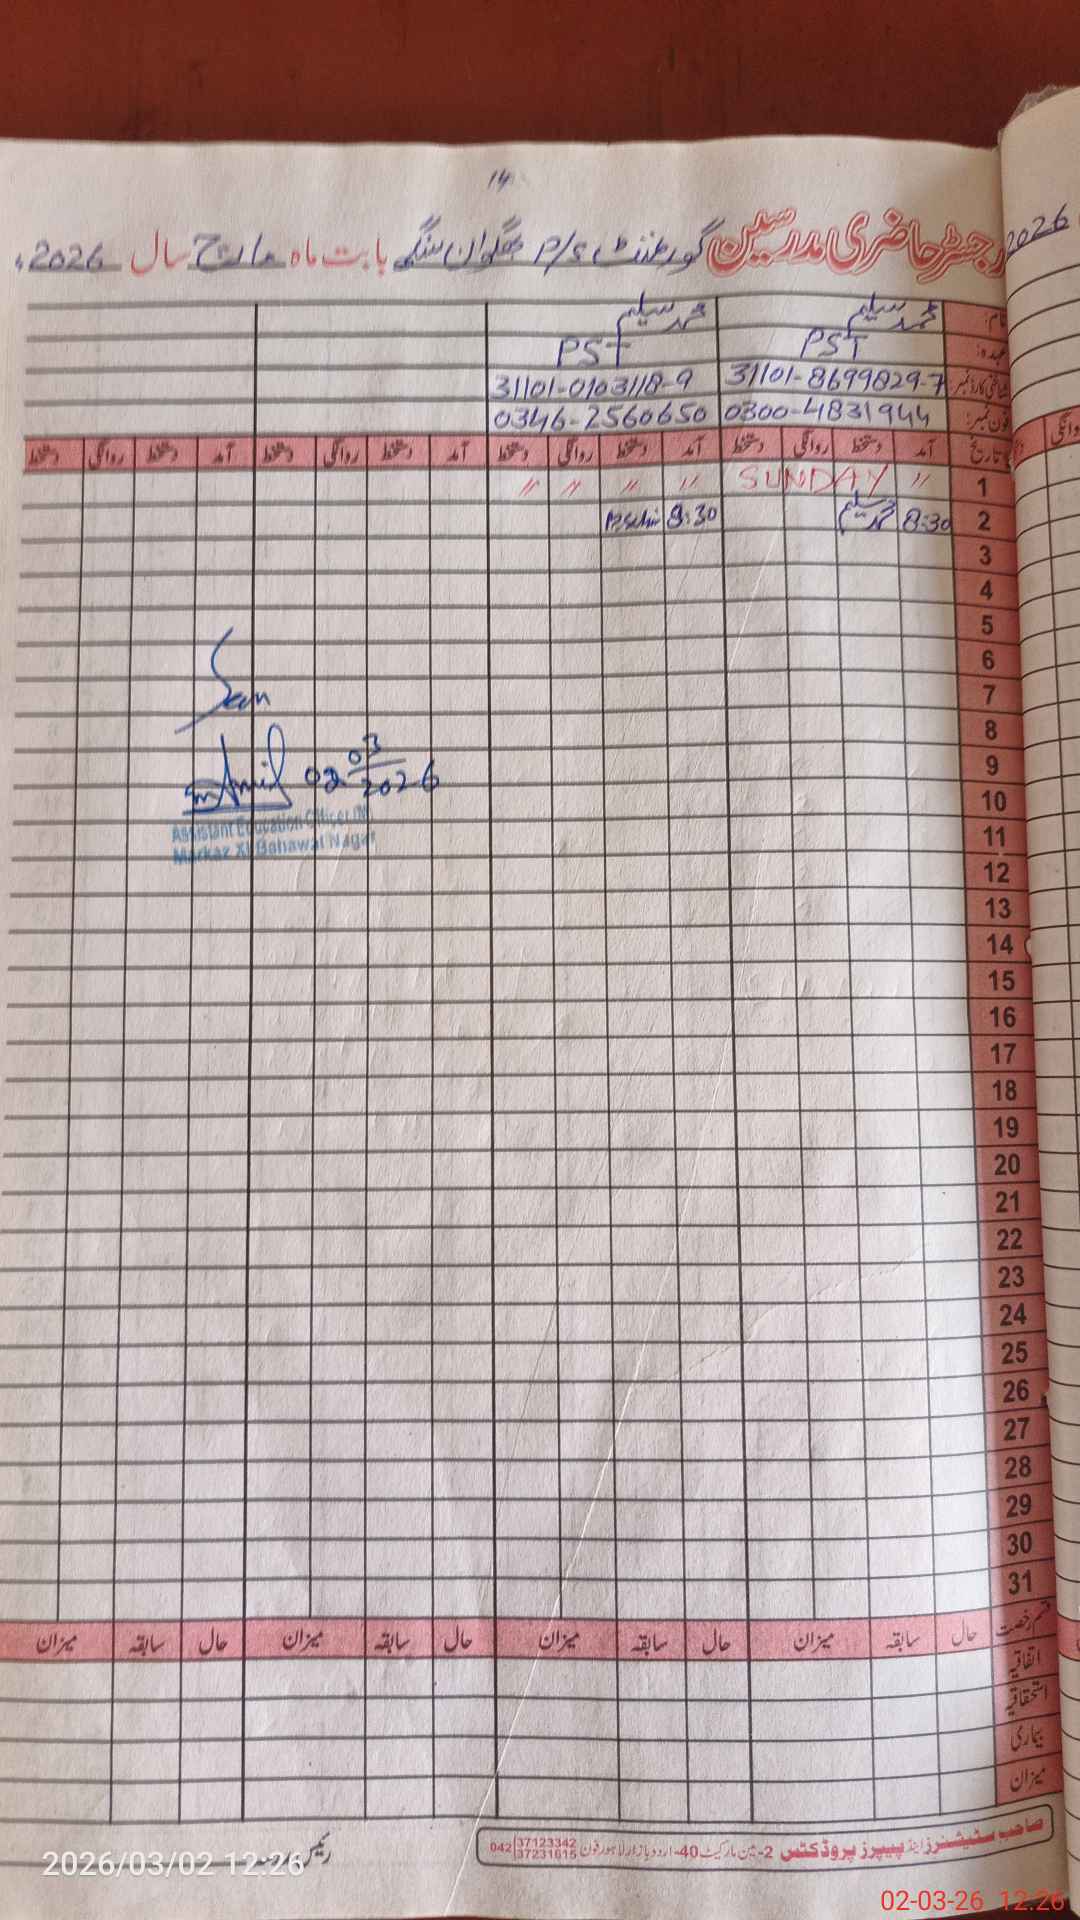 14
رجسٹر حاضری مدرسین گورنمنٹ P/S بھگوان سنگھ بابت ماہ مارچ سال 2026ء
2026
نام: محمد سلیم محمد سلیم
عہدہ: PST PST
شناختی کارڈ نمبر 31101-8699829-7 31101-0103118-9
فون نمبر: 0300-4831944 0346-2560650
تاریخ آمد دستخط روانگی دستخط آمد دستخط روانگی دستخط آمد دستخط روانگی دستخط آمد دستخط روانگی دستخط
روانگی
1 〃 SUNDAY 〃 〃 〃 〃
2 8:30 محمد سلیم 8:30
3
4
5
6
7
8
9
10
11
12
13
14
15
16
17
18
19
20
21
22
23
24
25
26
27
28
29
30
31
02 03/2026
Assistant Education Officer (M)
Markaz XI Bahawal Nagar
قسم رخصت حال سابقہ میزان حال سابقہ میزان حال سابقہ میزان حال سابقہ میزان
اتفاقیہ
استحقاقیہ
بیماری
میزان
صاحب سٹیشنرز اینڈ پیپرز پروڈکٹس 2-مین مارکیٹ 40-اردو بازار لاہور فون 042 37123342 37231615
2026/03/02 12:26
02-03-26 12:26